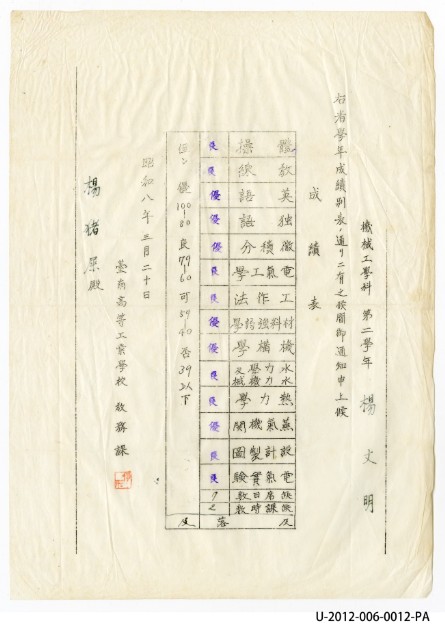 機械工學科 第二學年 楊文明
右者學年成績別表ノ通リニ有之候間御通知申上候
成績表
體操 良
敎練 良
英語 優
独語 優
微積分 優
電氣工學 良
工作法 良
材料強弱學 優
機構學 優
水力學及水力機械 良
熱力學 良
蒸氣機関 優
設計製圖 良
電氣實驗 良
缺席日数 7
缺課時数 2
及落 及
但シ 優100-80 良79-60 可59-40 否39以下
昭和八年三月二十日
臺南高等工業學校 敎務課
楊猪屎殿
U-2012-006-0012-PA